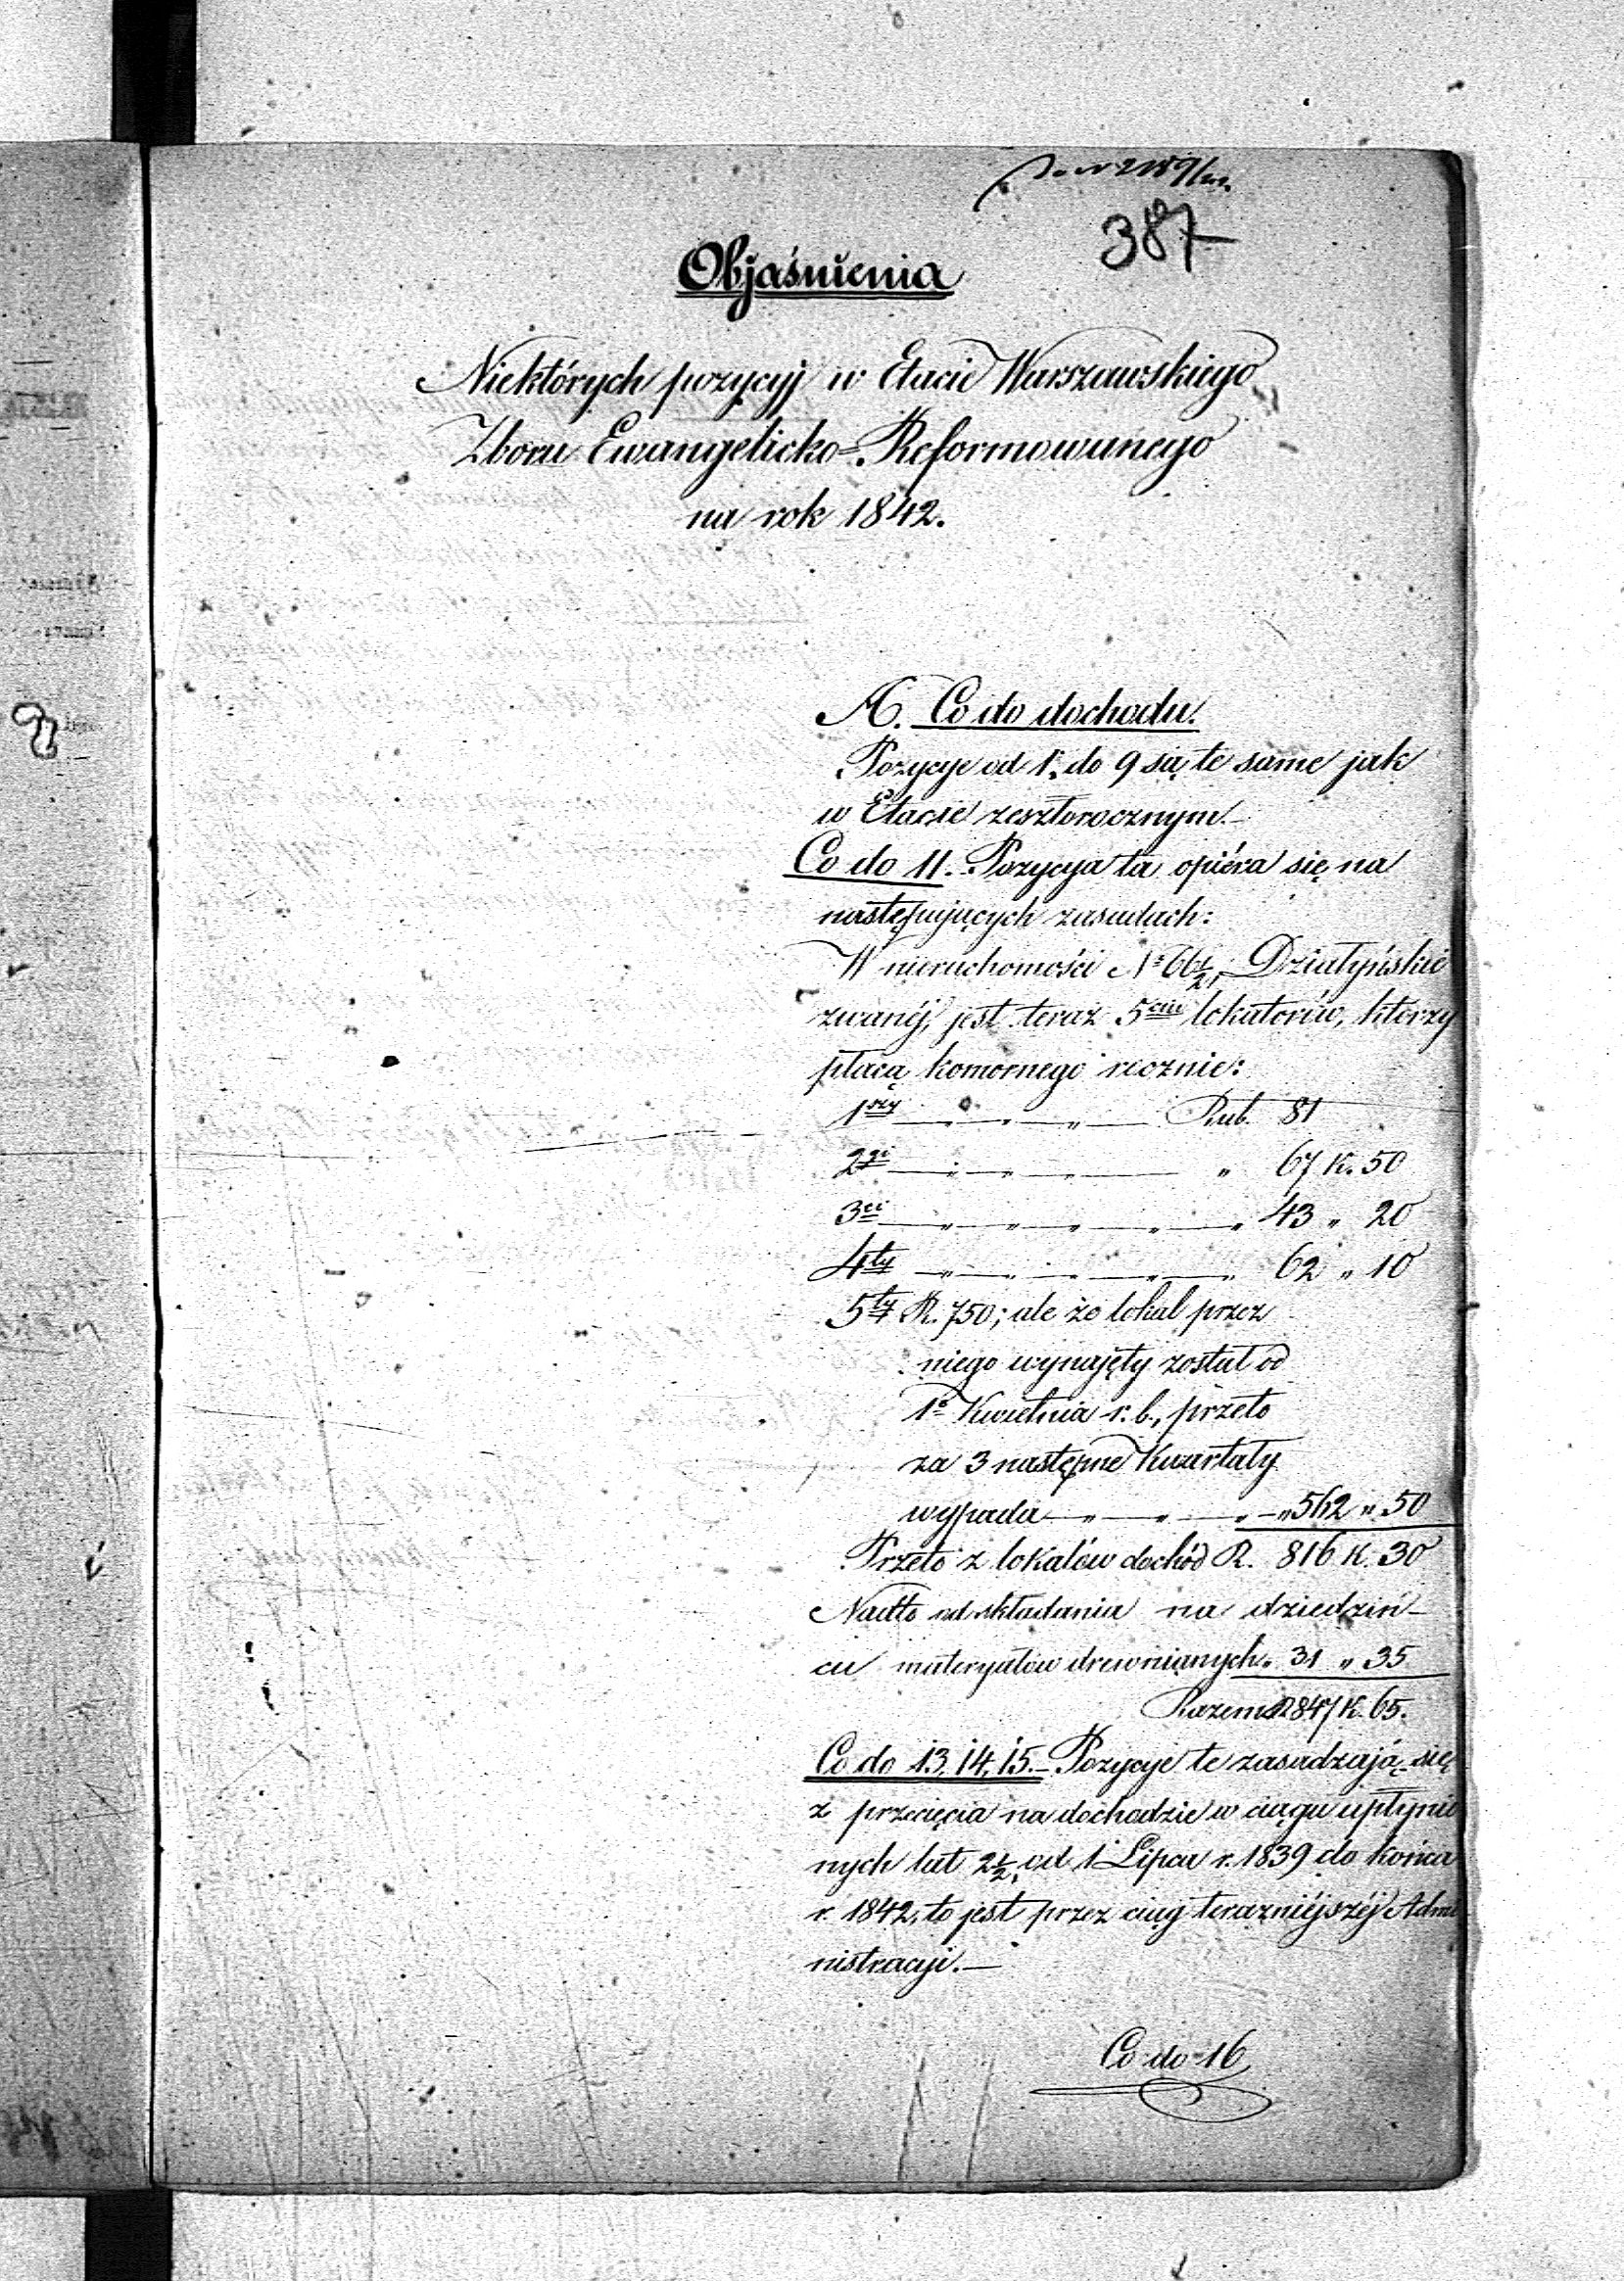 387
Objaśnienia
Niektórych pozycyj w Etacie Warszawskiego
Zboru Ewangelicko-Reformowanego
na rok 1842.
A. Co do dochodu.
Pozycye od 1. do 9 są te same jak
w Etacie zeszłorocznym.
Co do 11. Pozycya ta opiéra się na
następujących zasadach:
W nieruchomości Nº 66½, Działyńskie
zwanéj, jest teraz 5ciu lokatorów, którzy
płacą komornego rocznie:
1szy — „ — „ — Rub. 81
2gi — „ — „ — „ 67 K. 50
3ci — „ — „ — „ — „ — „ 43 „ 20
4ty — „ — „ — „ — „ — „ 62 „ 10
5ty R. 750; ale że lokal przez
niego wynajęty został od
1º Kwietnia r. b., przeto
za 3 następne Kwartały
wypada — „ — „ — „ — „ 562 „ 50
Przeto z lokalów dochód R. 816 K. 30
Nadto od składania na dziedziń-
cu materyałów drewnianych „ 31 „ 35
Razem R 847 K. 65.
Co do 13, 14, 15. — Pozycyje te zasadzają się
z przecięcia na dochodzie w ciągu upłynio
nych lat 2½, od 1 Lipca r. 1839 do końca
r. 1842, to jest przez ciąg teraźniéjszéj Admi
nistracyi. —
Co do 16